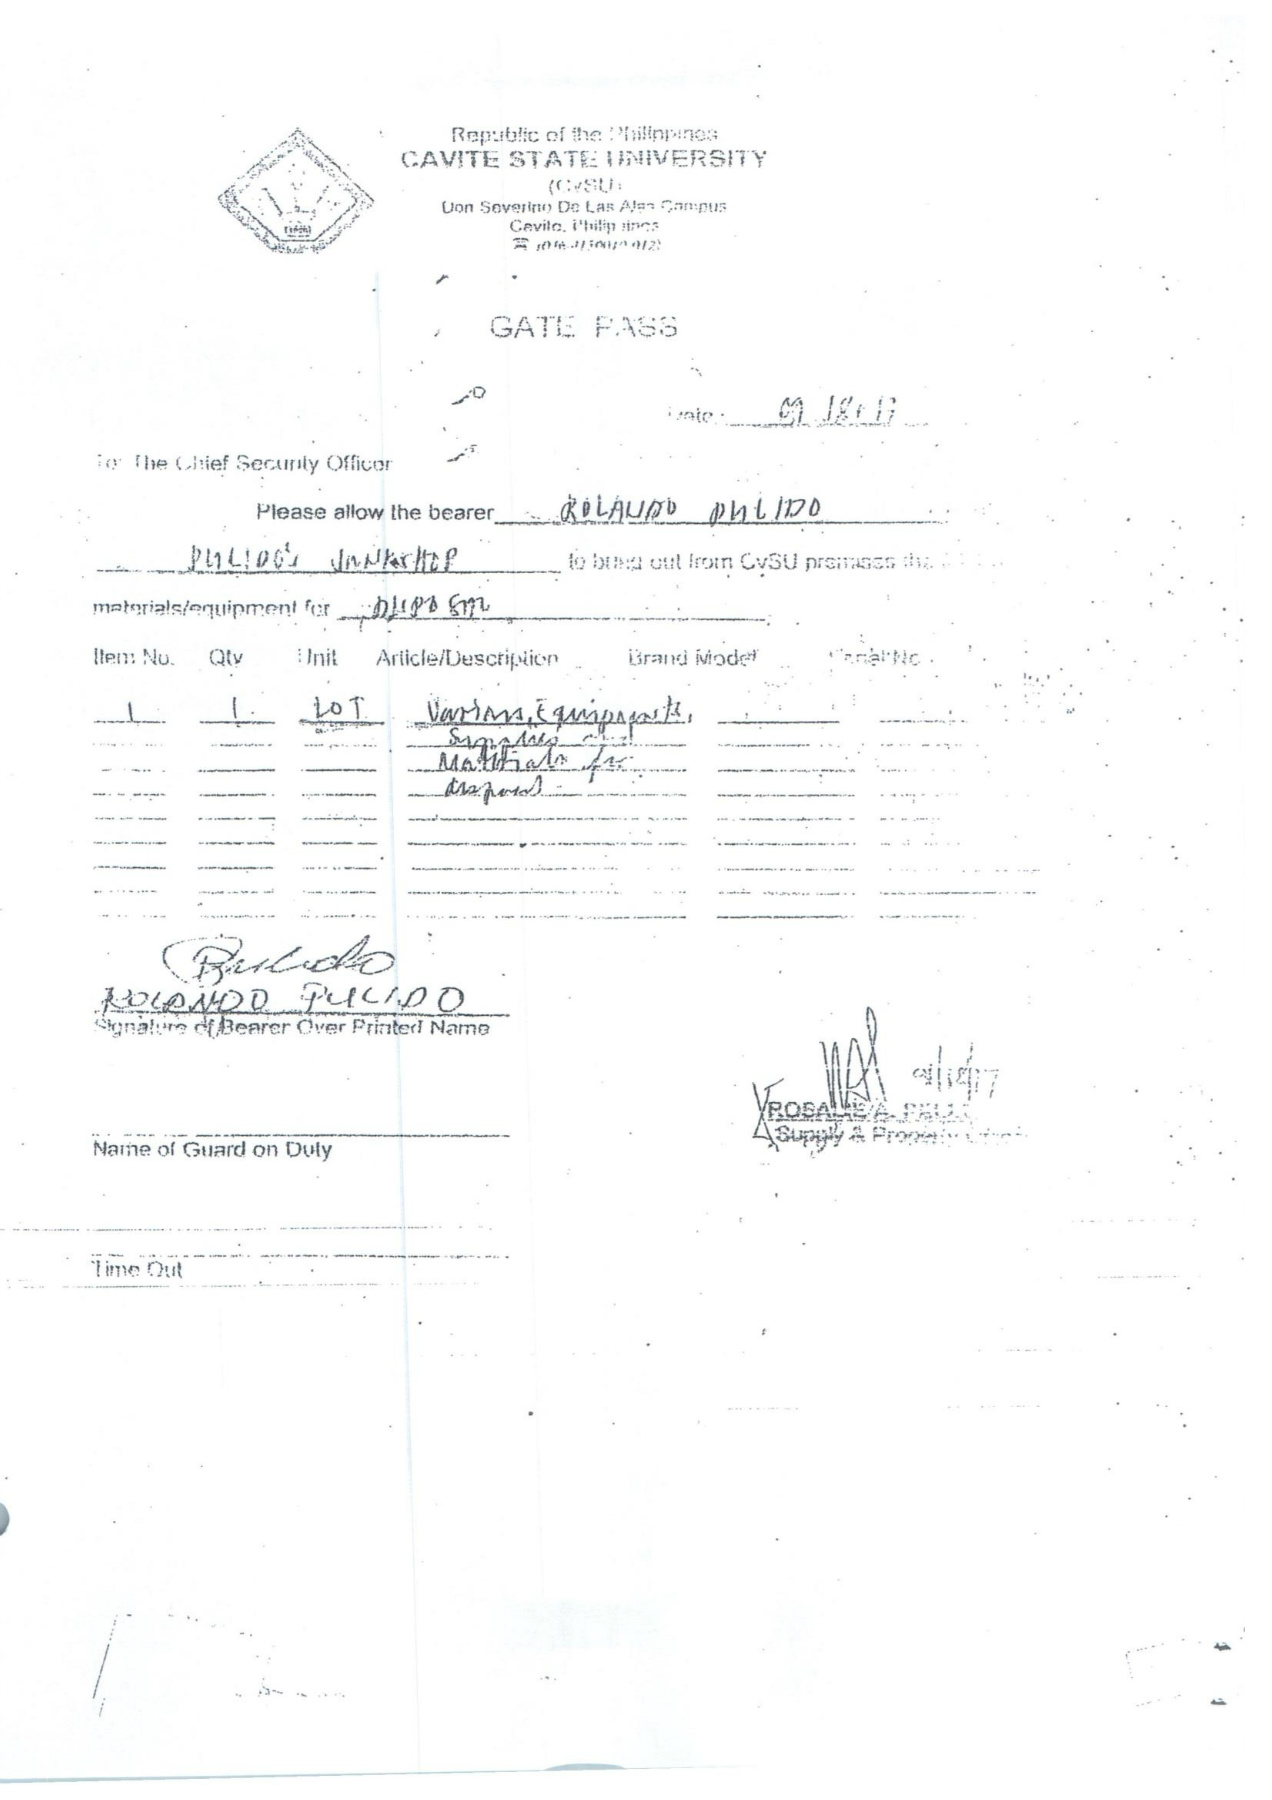 Republic of the Philippines
CAVITE STATE UNIVERSITY
(CvSU)
Don Severino De Las Alas Campus
Cavite, Philippines
GATE PASS
Date:
To: The Chief Security Officer
Please allow the bearer ROLANDO PULIDO
PULIDO's JUNKSHOP to bring out from CvSU premises the
materials/equipment for
Item No. Qty Unit Article/Description Brand Model Serial No.
1 1 LOT Various Equipments,
Supplies and
Materials for
disposal
ROLANDO PULIDO
Signature of Bearer Over Printed Name
ROSALIE A.
Supply & Property
Name of Guard on Duty
Time Out